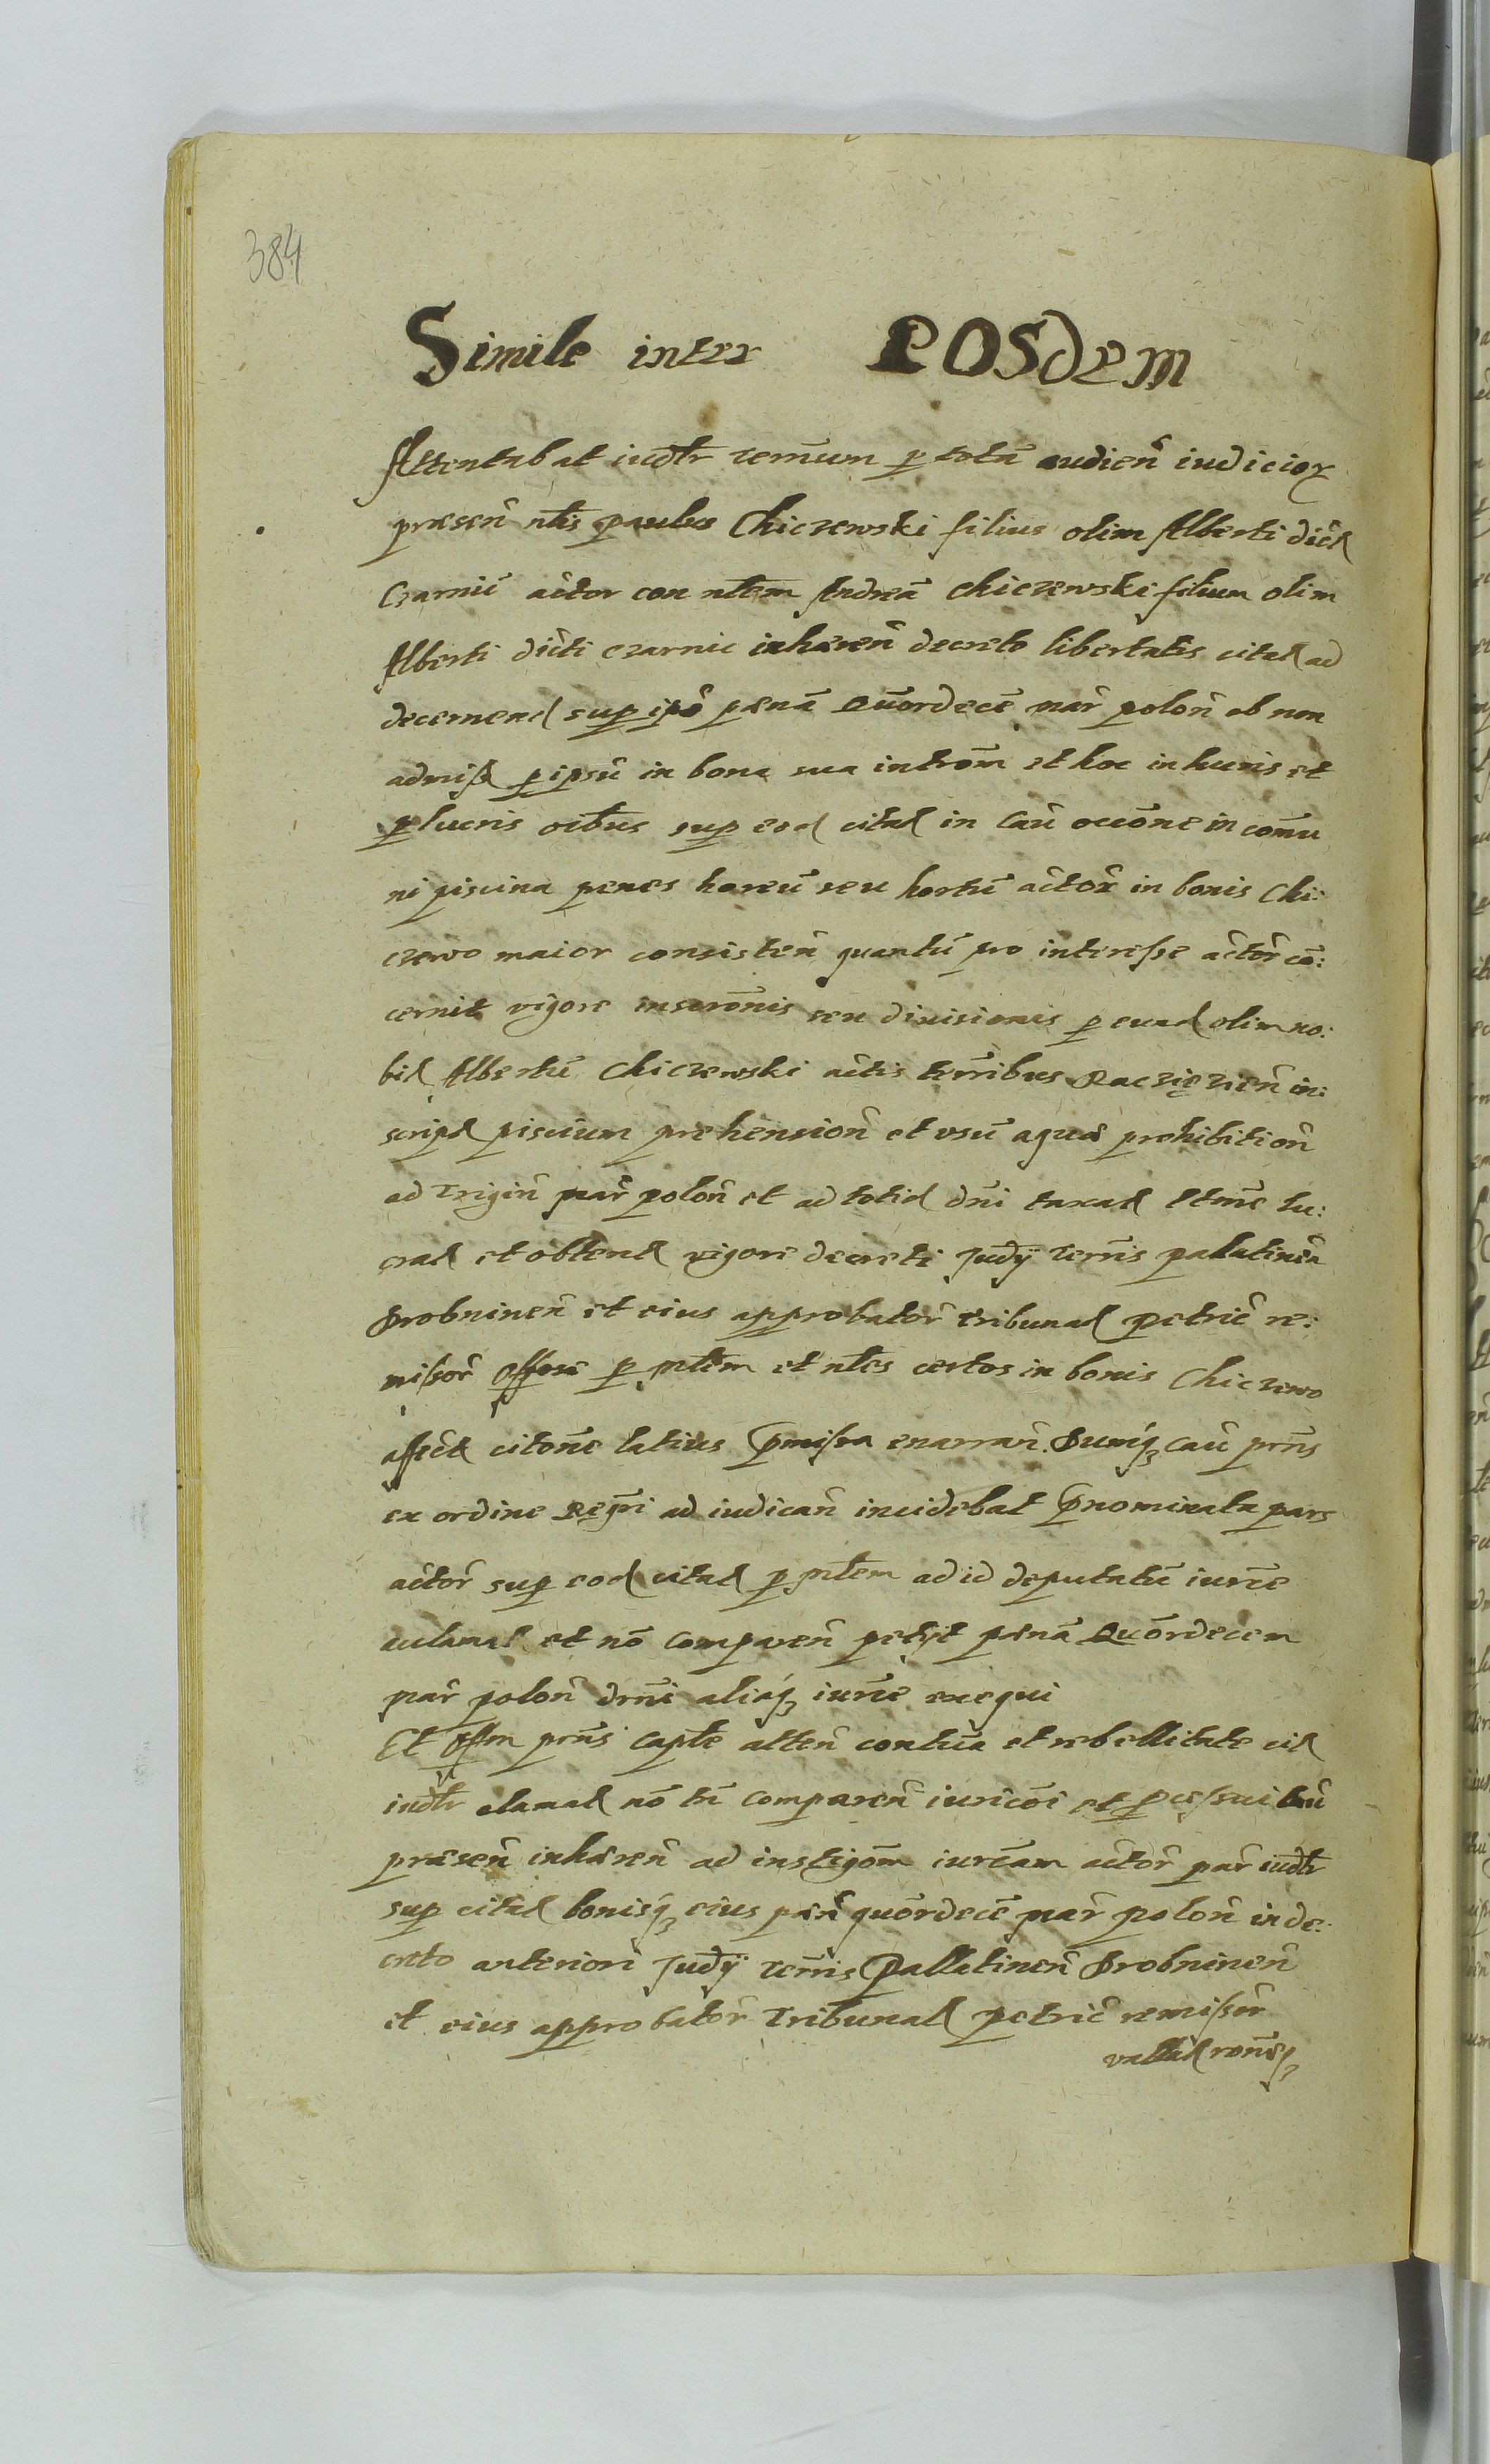 384
Simile inter EOSdem
Attentabat iudltr termum p totã audien̂ iudicior
præsen̂ nlis paulus Chiczewski filius olim Alberti dict
Czarnic actor con nlem Andreã Chiczewski filium olim
Alberti dicti czarnic inhæren̂ decreto libertatis citat ad
decernend sup ipo pænã Quordecẽ mar̂ polon̂ ob non
admiss p ipsũ in bona sua introm̃ et hoc in huius et
p lucris oĩbus sup eod citat in Cau occõne in com̃u
ni piscina penes horeũ seu hortũ actor in bonis Chi:
czewo maior consisten̂ quantũ pro interesse actor cõ:
cernit vigore inscrõnis seu diuisionis p eund olim no:
bil Albertũ Chiczewski actis trr̃ibus Raciązien̂ in:
script piscium prehension̂ et vsũ aquæ prohibition̂
ad trigin̂ mar̂ polon̂ et ad totid dñi taxat ltime lu:
crat et obtent vigore decreti Judÿ terris̃ pallatinen̂
Drobninen̂ et eius approbator̂ tribunal petriĉ re:
missor̂ offose p mlem et nles certos in bonis Chiczewo
affect citone latius p̃missa enarran̂. Dumq̃ cau prñs
ex ordine Regr̃i ad iudican̂ incidebat p̃nominata pars
actor̂ sup eod citat p mlem ad id deputatũ iurẽ
acclamat et nõ comparen̂ petijt pænã Quõrdecem
mar̂ polon̂ drñi aliaq̃ iurẽ exequi
Et Offm prñs Capte atten̂ contũa et rebellitate cit
iudltr clamat nõ tñ comparen̂ iuricõi et pcessui suũ
præsen̂ inhæren̂ ad instigõm iurẽam actor̂ par̂ iudltr
sup citat bonisq̃ eius pæn̂ quõrdecẽ mar̂ polon̂ in de:
creto anteriori Judÿ terris̃ Pallatinen̂ Drobninen̂
et eius approbator̂ tribunal petriĉ remissor̂
vallat